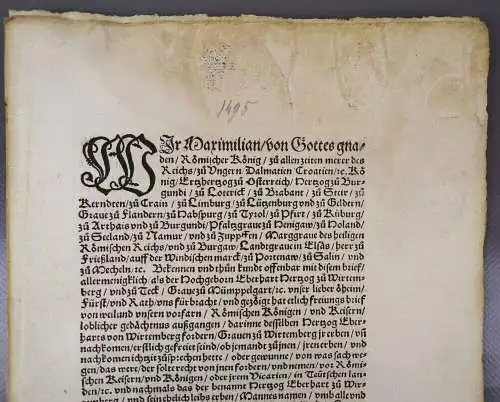 1495
WIr Maximilian/von Gottes gna-
den/Römischer König/zů allen zeiten merer des
Reichs/zů Vngern Dalmatien Croatien/ꝛc. Kö-
nig/Ertzhertzog zů Osterreich/Hertzog zů Bur-
gundi/zů Loterick/zů Brabant/zů Steir/zů
Kerndten/zů Crain/zů Limburg/zů Lützenburg vnd zů Geldern/
Graue zů Flandern/zů Habspurg/zů Tyrol/zů Pfirt/zů Kůburg/
zů Arthais vnd zů Burgundi/Pfaltzgraue zů Henigaw/zů Holand/
zů Seeland/zů Namur/vnd zů Zupffen/Marggraue des heiligen
Römischen Reichs/vnd zů Burgaw/Landtgraue in Elsäs/herr zů
Frießland/auff der Windischen marck/zů Portenaw/zů Salin/vnd
zů Mecheln/ꝛc. Bekennen vnd thůn kundt offenbar mit disem brief/
allermenigklich/als der Hochgeborn Eberhart Hertzog zů Wirtem-
berg/vnd zů Teck/Graue zů Mümppelgart/ꝛc. vnser lieber öheim/
Fürst/vnd Rath/vns fürbracht/vnd gezöigt hat etlich freiungs brief
von weilund vnsern vorfarn/Römischen Königen/vnd Keisern/
loblicher gedächtnus außgangen/darinne desselben Hertzog Eber-
harts von Wirtemberg fordern/Grauen zů Wirtemberg jr erben/vň
nachkomen/erstlich gefreiet seind/ob jemandt zů jnen/jren erben/vnd
nachkomen ichtzit zů sprechen hette/oder gewunne/von was sach we-
gen/das were/der solte recht von jnen fordern/vnd nemen/vor Römi-
schen Keisern/vnd Königen/oder jren Vicarien/in Teütschen lan-
den/ꝛc. vnd nachmals das der benant Hertzog Eberhart zů Wir-
temberg/vnd sein ehelich leibs erben/Mannes namen/vmb all vnd